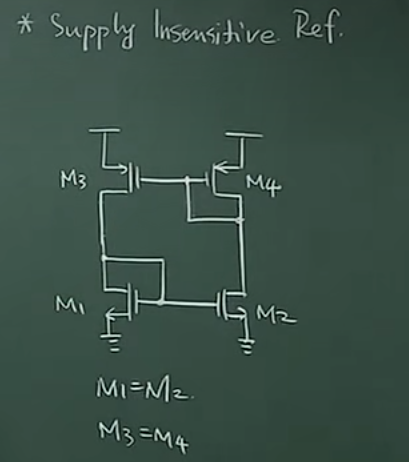 * Supply Insensitive Ref.
M3
M4
M1
M2
M1=M2.
M3=M4